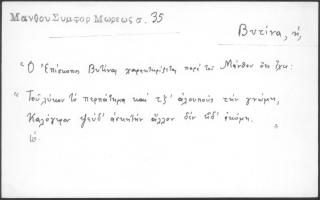 Μάνθου Συμφορ Μωρεως σ. 35
Βυτίνα, ἡ,
"Ὁ Ἐπίσκοπος Βυτίνας χαρακτηρίζεται παρὰ τοῦ Μάνθου ὅτι ἔχει:
"Τοῦ λύκου τὸ περπάτημα καὶ τζ' ἀλουποῦς τὴν γνώμη,
Καλόγερο ψεύδ' ἀσκητὴν ἄλλον δὲν εἶδ' ἀκόμη.